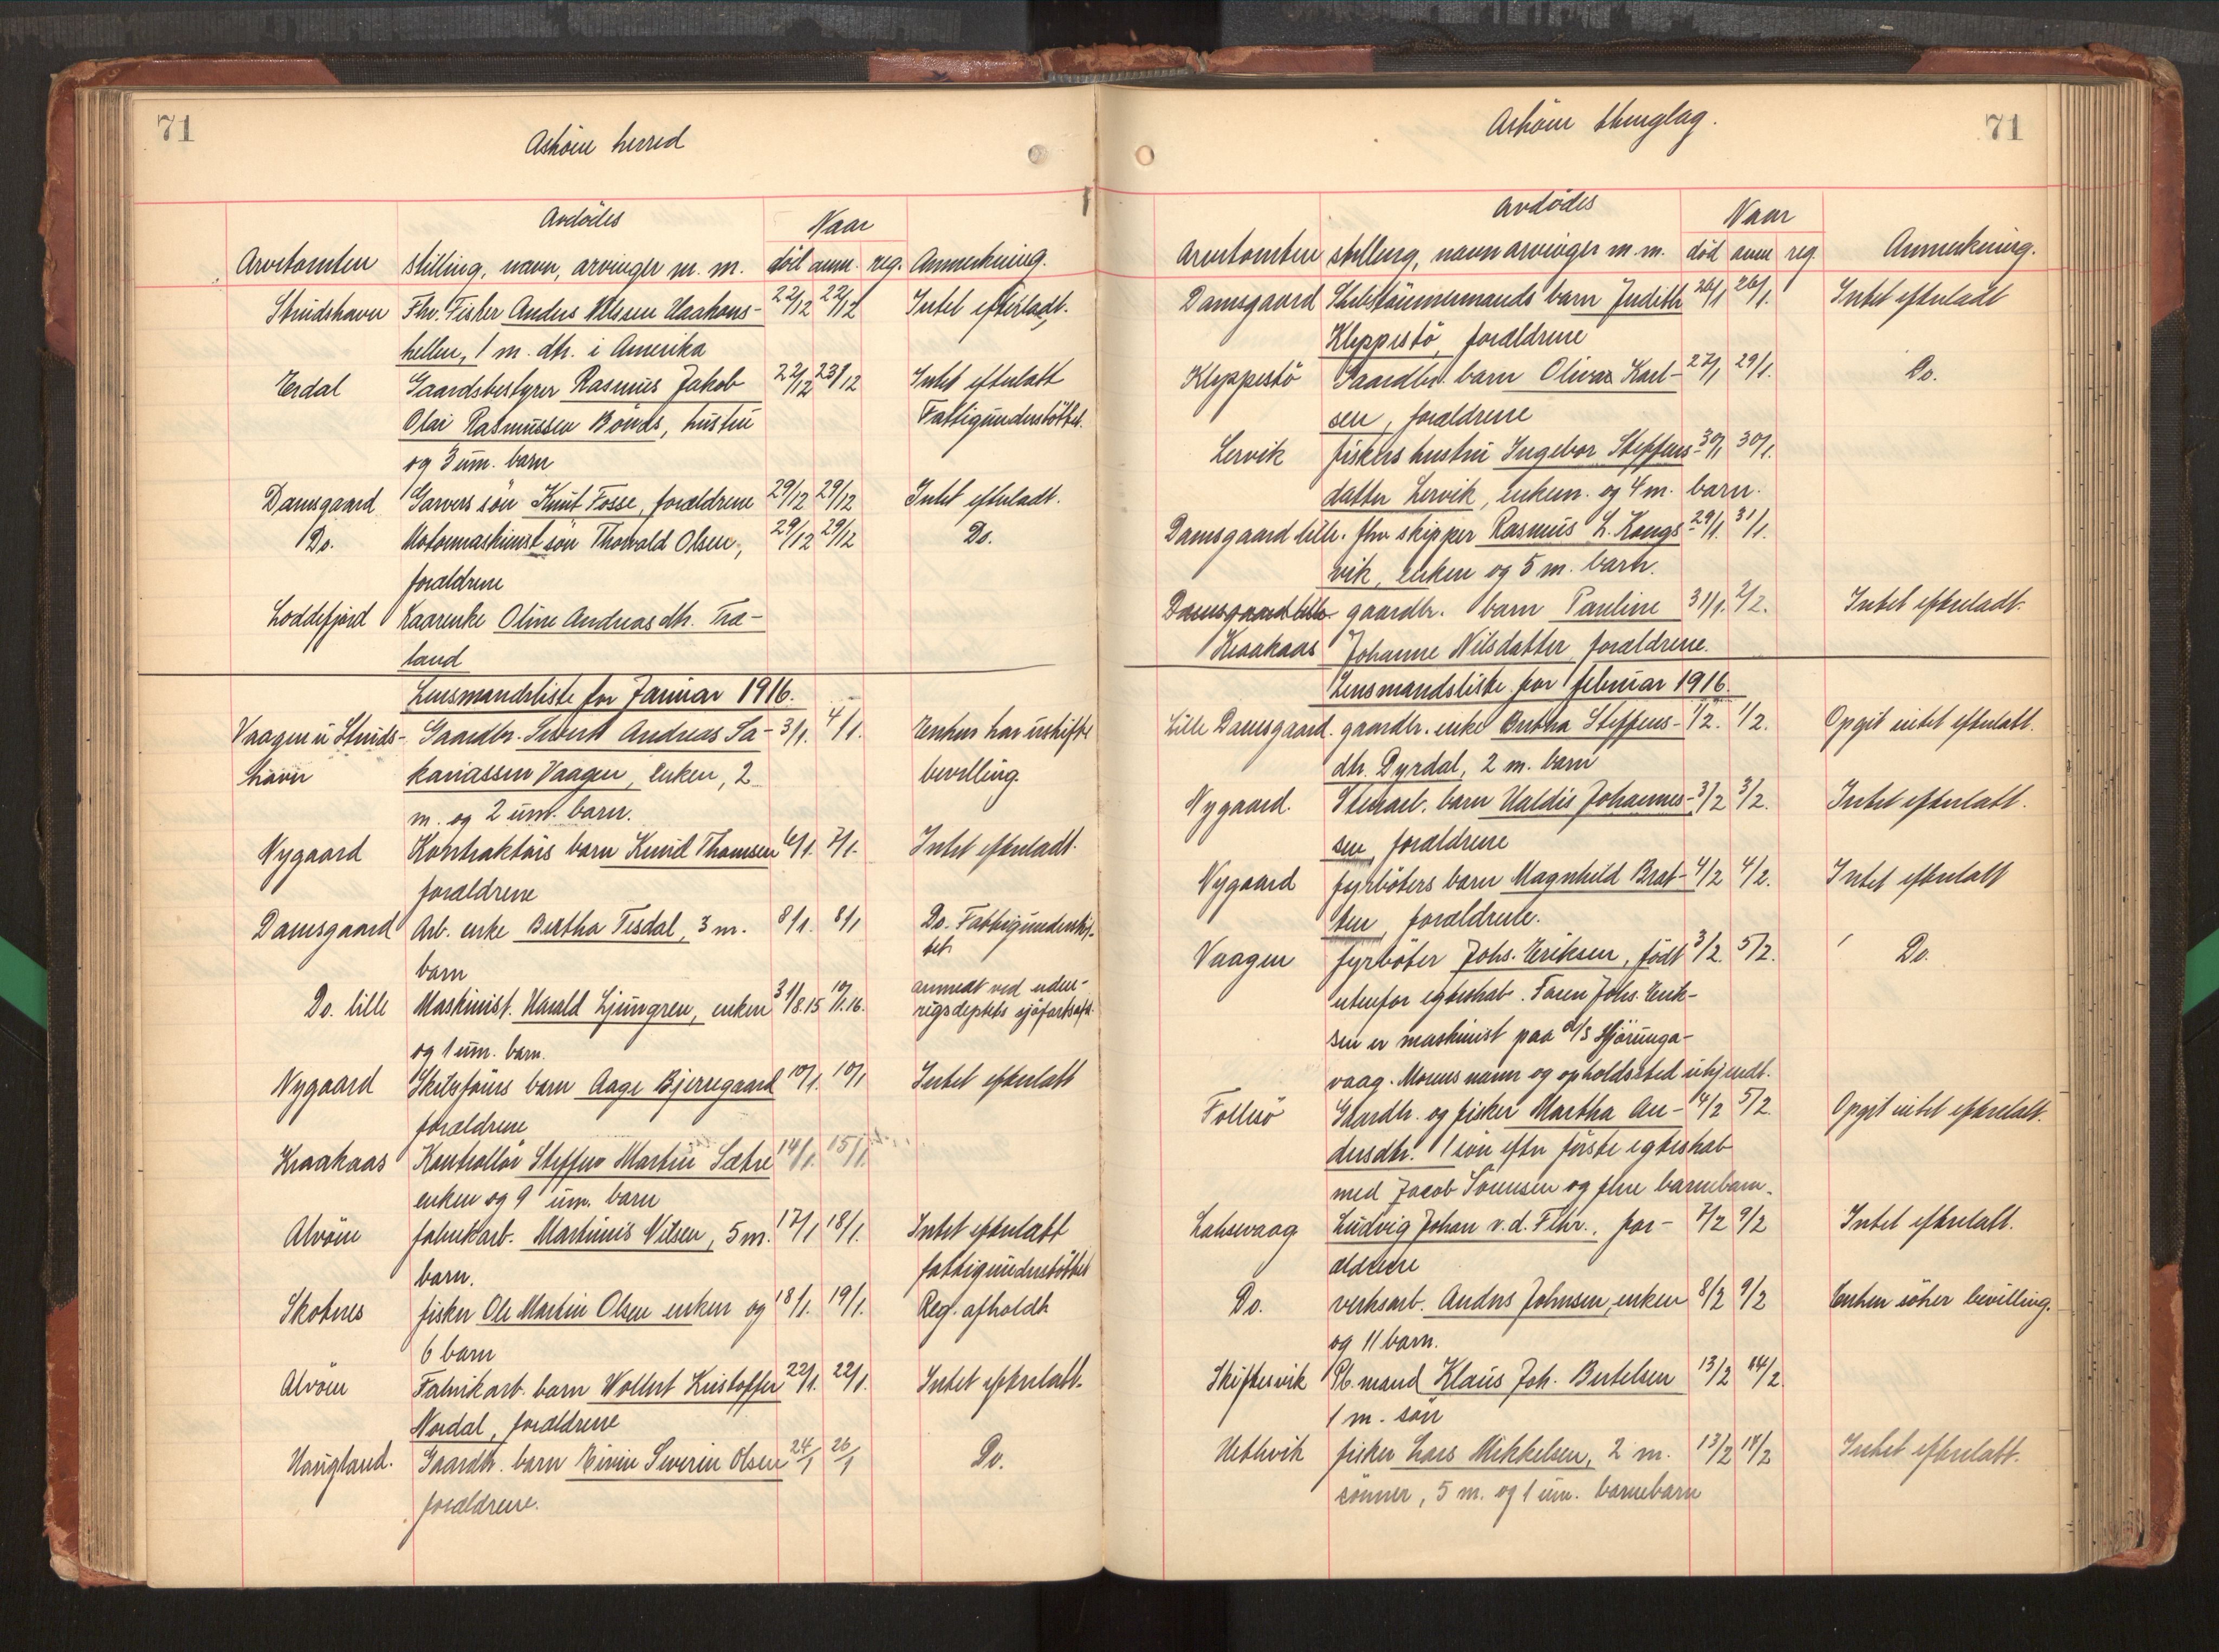 71
Askøen herred
Avdødes
Naar
Arvetomten stilling, navn, arvinger m. m. død anm. reg. Anmerkning.
Strudshavn Fhv. Fisker Anders Nilsen Haakons- 22/12 22/12 Intet efterladt.
hellen, 1 m. dtr. i Amerika
Erdal Gaardsbestyrer Rasmus Jakob 22/12 23/12 Intet efterlatt
Olai Rasmussen Bønds, hustru Fattigunderstøttet.
og 3 um. barn
Damsgaard Garvers søn Knut Fosse, forældrene 29/12 29/12 Intet efterladt.
Do. Motormaskinist søn Thorvald Olsen, 29/12 29/12 Do.
forældrene
Loddefjord Kaarenke Oline Andreasdtr. Træ-
land
Lensmandsliste for Januar 1916.
Vaagen u Struds- Gaardbr. Sivert Andreas Sa- 3/1. 4/1. Enken har uskifte
havn kariassen Vaagen, enken, 2 bevilling.
m. og 2 um. barn.
Nygaard Kontraktørs barn Knud Thomsen 6/1. 7/1. Intet efterladt.
forældrene
Damsgaard Arb. enke Bertha Tesdal, 3 m. 8/1. 8/1 Do. Fattigunderstøt-
barn tet.
Do. lille Maskinist. Harald Ljungren, enken 31/8.15 10/1.16. anmeldt ved uden-
og 1 um. barn. rigsdeptets sjøfartsafd.
Nygaard barn Aage Bjerregaard 10/1. 10/1 Intet efterlatt
forældrene
Kraakaas Kontrollør Steffen Martin Sætre 14/1. 15/1.
enken og 9 um. barn
Alvøen fabrikarb. Martinus Nilsen, 5 m. 17/1 18/1. Intet efterlatt
barn. fattigunderstøttet
Skotnes fisker Ole Martin Olsen enken og 18/1. 19/1. Reg. afholdt
6 barn
Alvøen Fabrikarb. barn Wollert Kristoffer 22/1. 22/1. Intet efterlatt.
Nordal, forældrene
Haugland. Gaardbr. barn Eivin Severin Olsen 24/1 26/1 Do.
forældrene.
71
Askøen thinglag.
Avdødes
Naar
Arvetomten stilling, navn arvinger m. m. død anm reg. Anmerkning.
Damsgaard Skibstømmermands barn Judith 26/1 26/1. Intet efterladt
Kleppestø, forældrene
Kleppestø Gaardbr. barn Olivar Karl- 27/1 29/1. Do.
sen, forældrene
Lervik fiskers hustru Ingebor Steffens- 30/1 30/1.
datter Lervik, enkem. og 4 m. barn.
Damsgaard lille. fhv skipper Rasmus L. Kongs- 29/1. 31/1.
vik, enken og 5 m. barn.
Damsgaard lille gaardbr. barn Pauline 31/1. 2/2. Intet efterladt.
Kraakaas Johanne Nilsdatter forældrene.
Lensmandsliste for februar 1916.
Lille Damsgaard. gaardbr. enke Bertha Steffens- 1/2. 1/2. Opgit intet efterlatt.
dtr. Dyrdal, 2 m. barn
Nygaard. Stenarb. barn Haldis Johannes- 3/2 3/2. Intet efterlatt.
sen, forældrene
Nygaard fyrbøters barn Magnhild Brat- 4/2 4/2. Intet efterlatt
ten, forældrene.
Vaagen fyrbøter Johs. Eriksen, født 3/2. 5/2. Do.
utenfor egteskab. Faren Johs. Erik-
sen er maskinist paa d/s Hjørunga-
vaag. Morens navn og opholdssted ukjendt.
Follesø Gaardbr. og fisker Martha An- 4/2 5/2. Opgit intet efterlatt.
dersdtr. 1 søn efter første egteskab
med Jacob Sørensen og flere barnebarn.
Laksevaag Ludvig Johan v. d. Fehr., for- 7/2 9/2 Intet efterlatt.
ældrene
Do. verksarb. Anders Johnsen, enken 8/2 9/2 Enken søker bevilling.
og 11 barn.
Skiftesvik Pb. mand Klaus Joh. Bertelsen 13/2 14/2.
1 m. søn
Hethvik fisker Lars Mikkelsen, 2 m. 13/2 14/2 Intet efterlatt.
sønner, 5 m. og 1 um. barnebarn